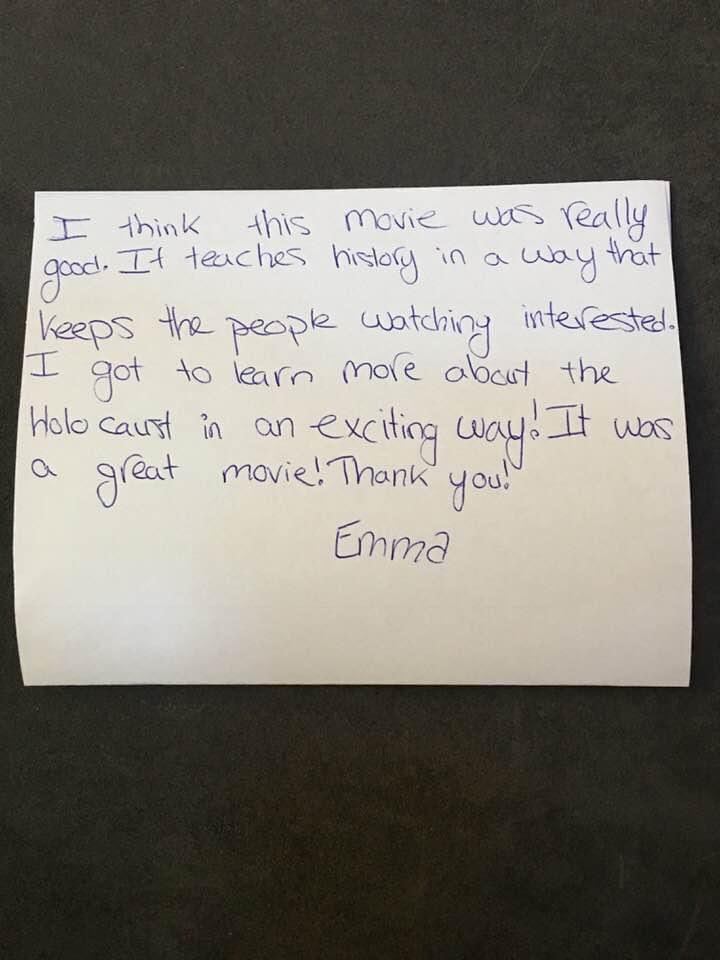 I think this movie was really
good. It teaches history in a way that
keeps the people watching interested.
I got to learn more about the
Holocaust in an exciting way! It was
a great movie! Thank you!
Emma